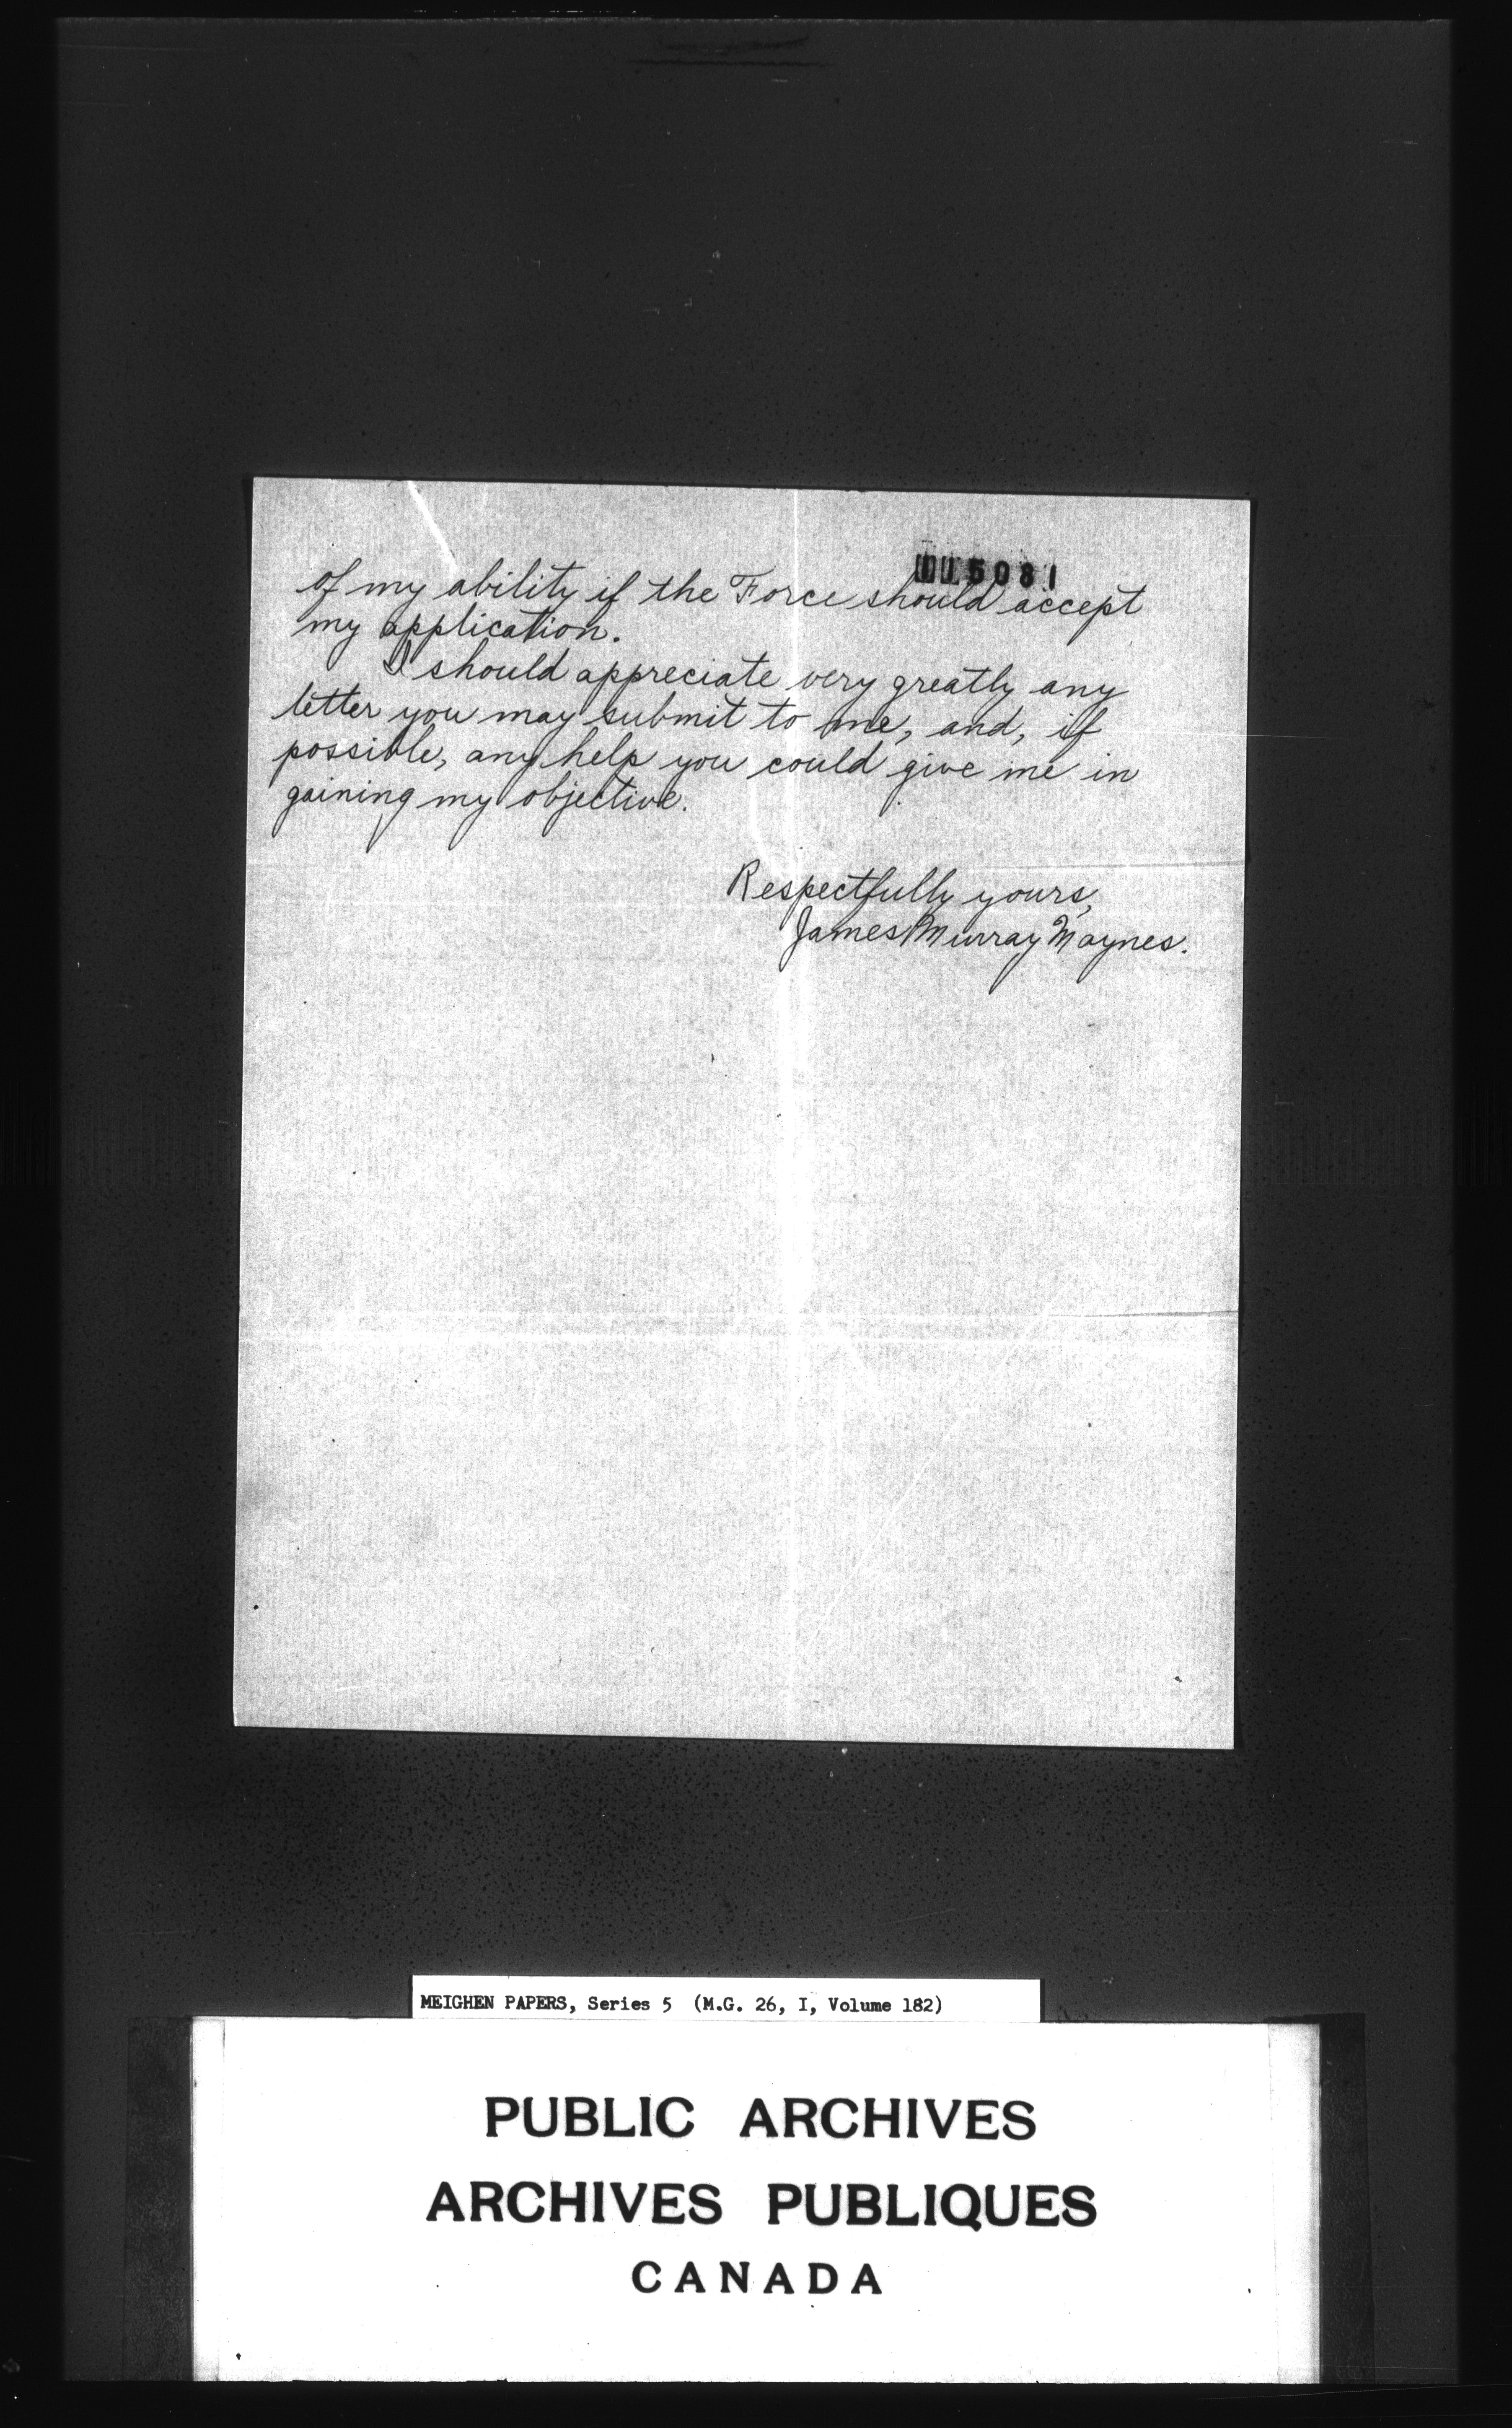 115081
of my ability if the Force should accept
my application.
I should appreciate very greatly any
letter you may submit to me, and, if
possible, any help you could give me in
gaining my objective.
Respectfully yours,
James Murray Maynes.
MEIGHEN PAPERS, Series 5 (M.G. 26, I, Volume 182)
PUBLIC ARCHIVES
ARCHIVES PUBLIQUES
CANADA